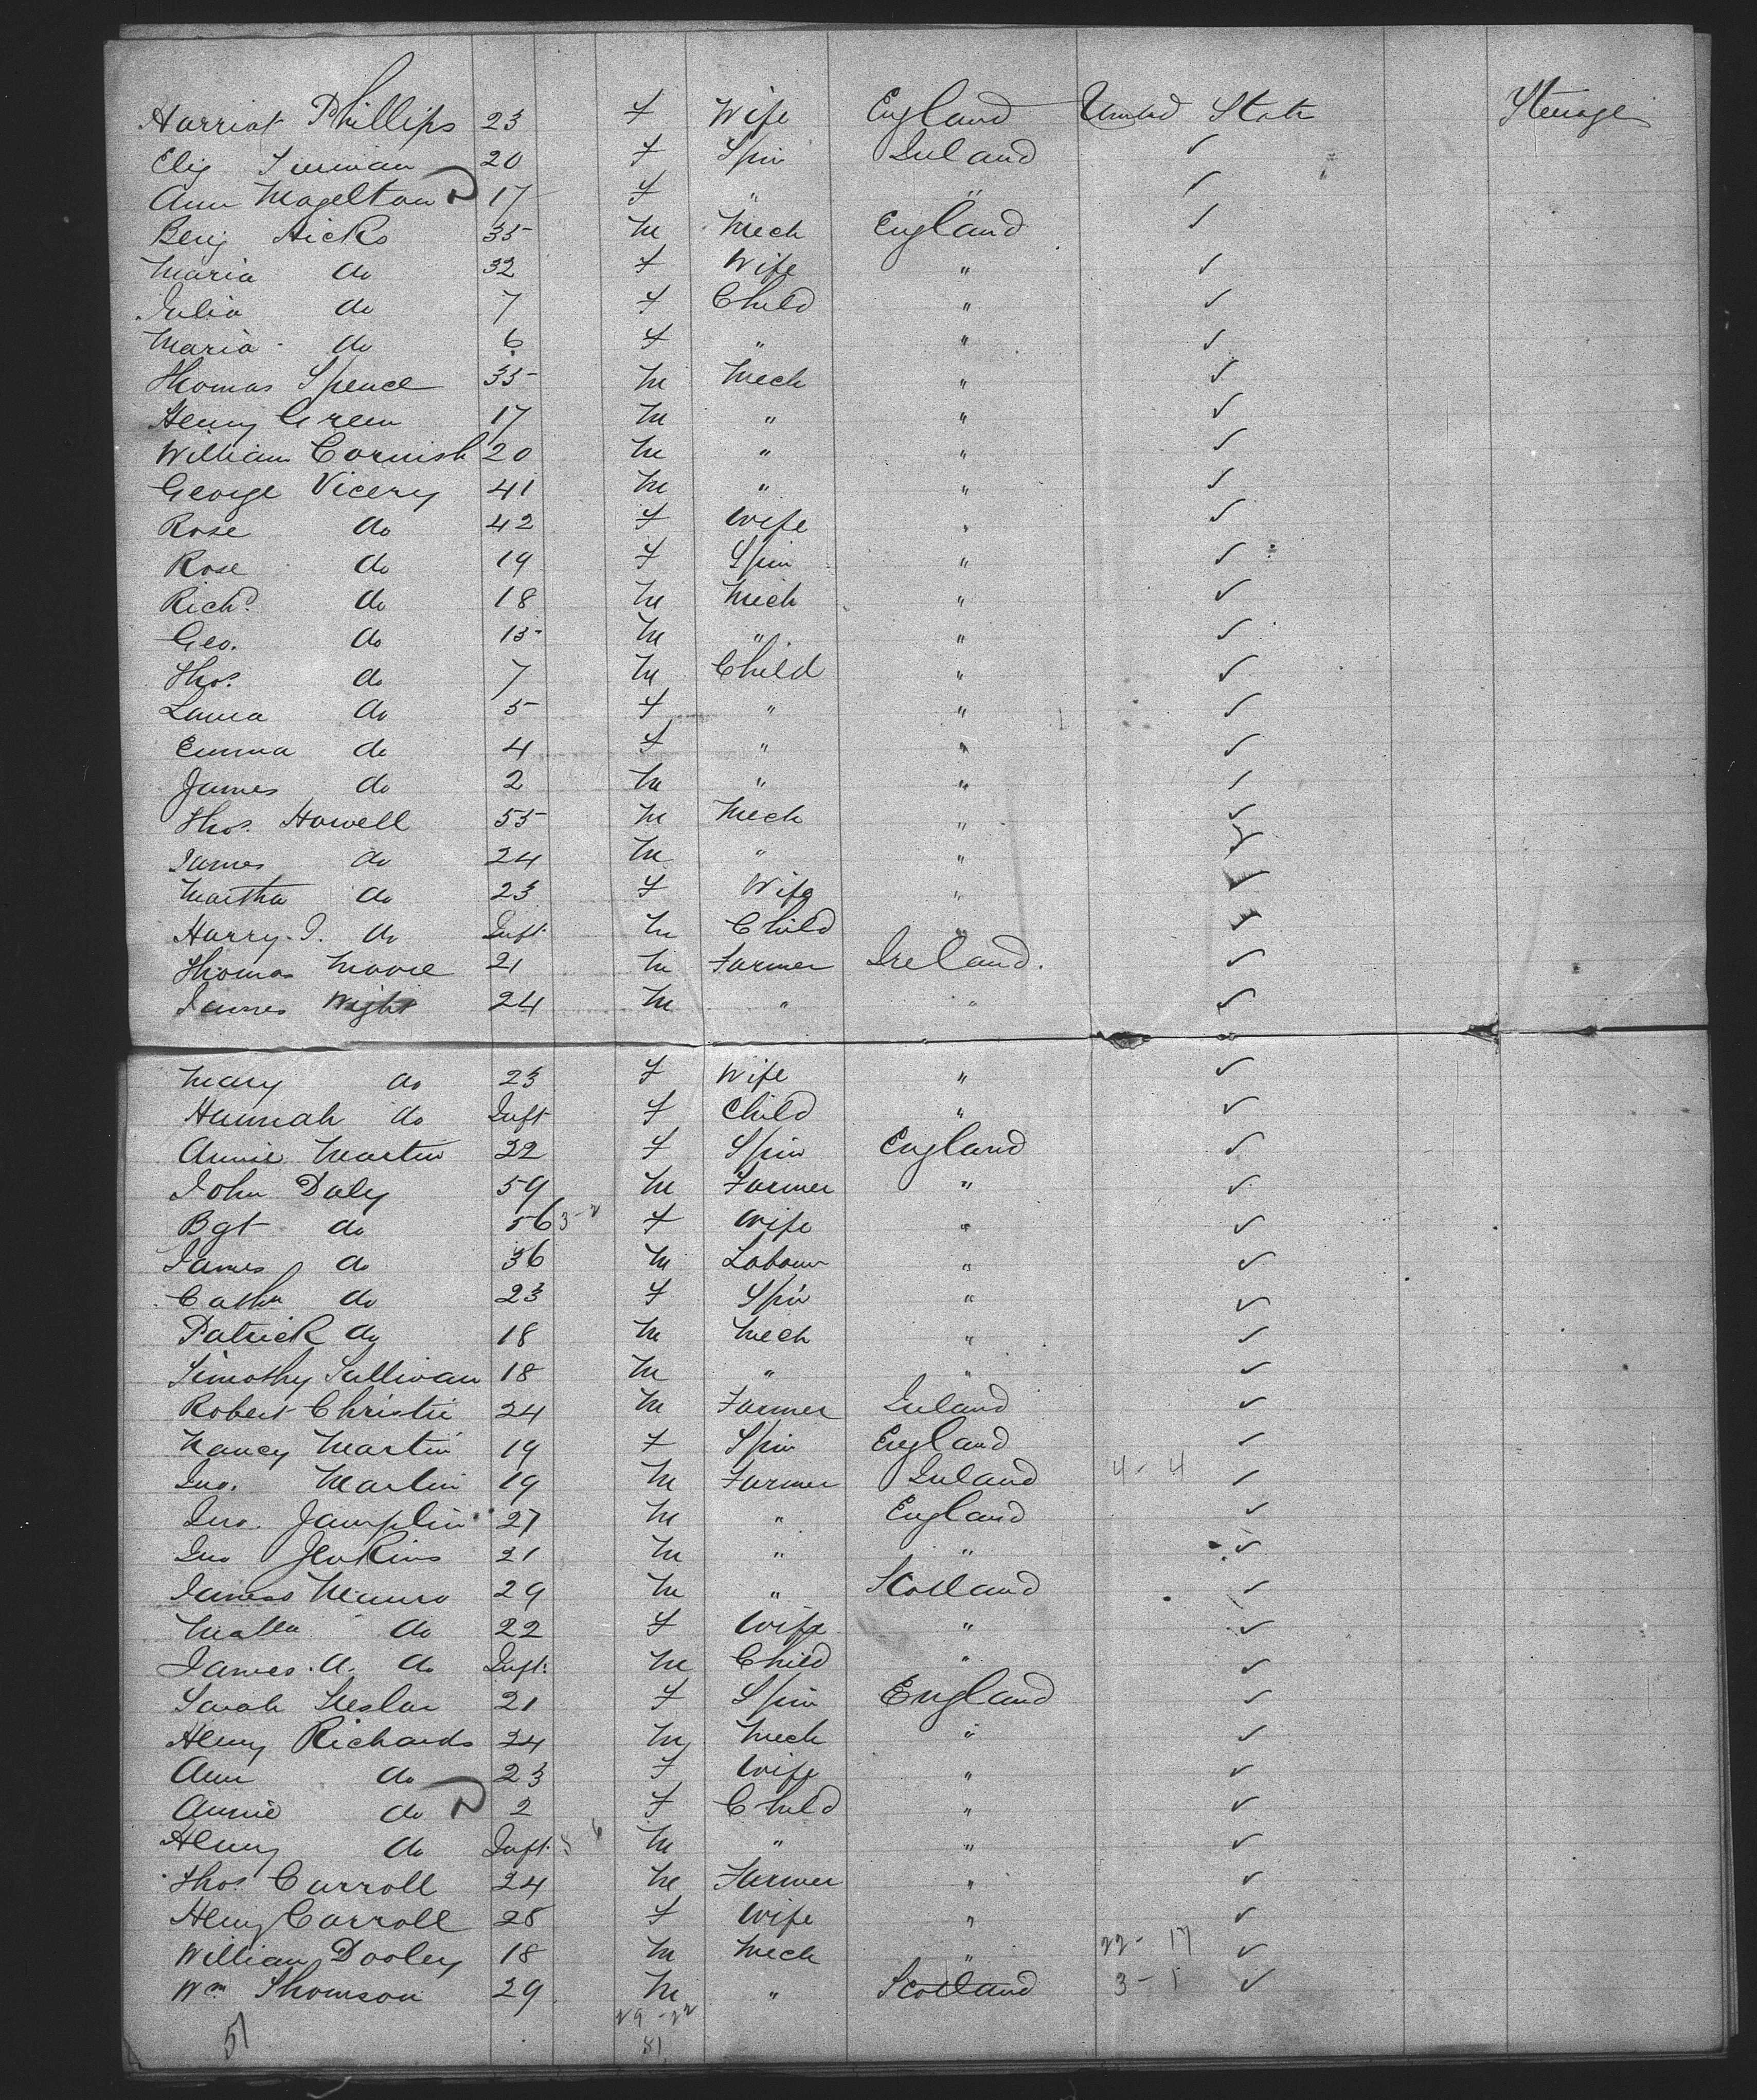 Harriot Phillips 23 F Wife England United State Steerage
Eliz 20 F Spin Ireland ✓
Ann Magelton 17 F " " ✓
Benj Hicks 35 M Mech England ✓
Maria do 32 F Wife " ✓
Julia do 7 F Child " ✓
Maria do 6 F " " ✓
Thomas Spence 35 M Mech " ✓
Henry Green 17 M " " ✓
William Cornish 20 M " " ✓
George Vicery 41 M " " ✓
Rose do 42 F Wife " ✓
Rose do 19 F Spin " ✓
Richd do 18 M Mech " ✓
Geo. do 15 M " " ✓
Thos. do 7 M Child " ✓
Laura do 5 F " " ✓
Emma do 4 F " " ✓
James do 2 M " " ✓
Thos. Howell 55 M Mech " ✓
James do 24 M " " ✓
Martha do 23 F Wife " ✓
Harry. J. do Inft. M Child " ✓
Thomas Moore 21 M Farmer Ireland. ✓
James Wight 24 M " " ✓
Mary do 23 F Wife " ✓
Hannah do Inft F Child " ✓
Annie Martin 22 F Spin England ✓
John Daly 59 M Farmer " ✓
Bgt do 56 3-2 F Wife " ✓
James do 36 M Labour " ✓
Cathn do 23 F Spin " ✓
Patrick do 18 M Mech " ✓
Timothy Sullivan 18 M " " ✓
Robert Christie 24 M Farmer Ireland ✓
Nancy Martin 19 F Spin England ✓
Jno. Martin 19 M Farmer Ireland 4-4 ✓
Jno. Jamplin 27 M " England ✓
Jno Jenkins 21 M " " ✓
James Munro 29 M " Scotland ✓
do 22 F Wife " ✓
James. A. do Inft. M Child " ✓
Sarah 21 F Spin England ✓
Henry Richards 24 M Mech " ✓
Ann do 23 F Wife " ✓
Annie do 2 F Child " ✓
Henry do Inft. 5 6 M " " ✓
Thos Carroll 24 M Farmer " ✓
Henry Carroll 28 F Wife " ✓
William Dooley 18 M Mech " 22-17 ✓
Wm Thomson 29 M " Scotland 3-1 ✓
51 29-22
51